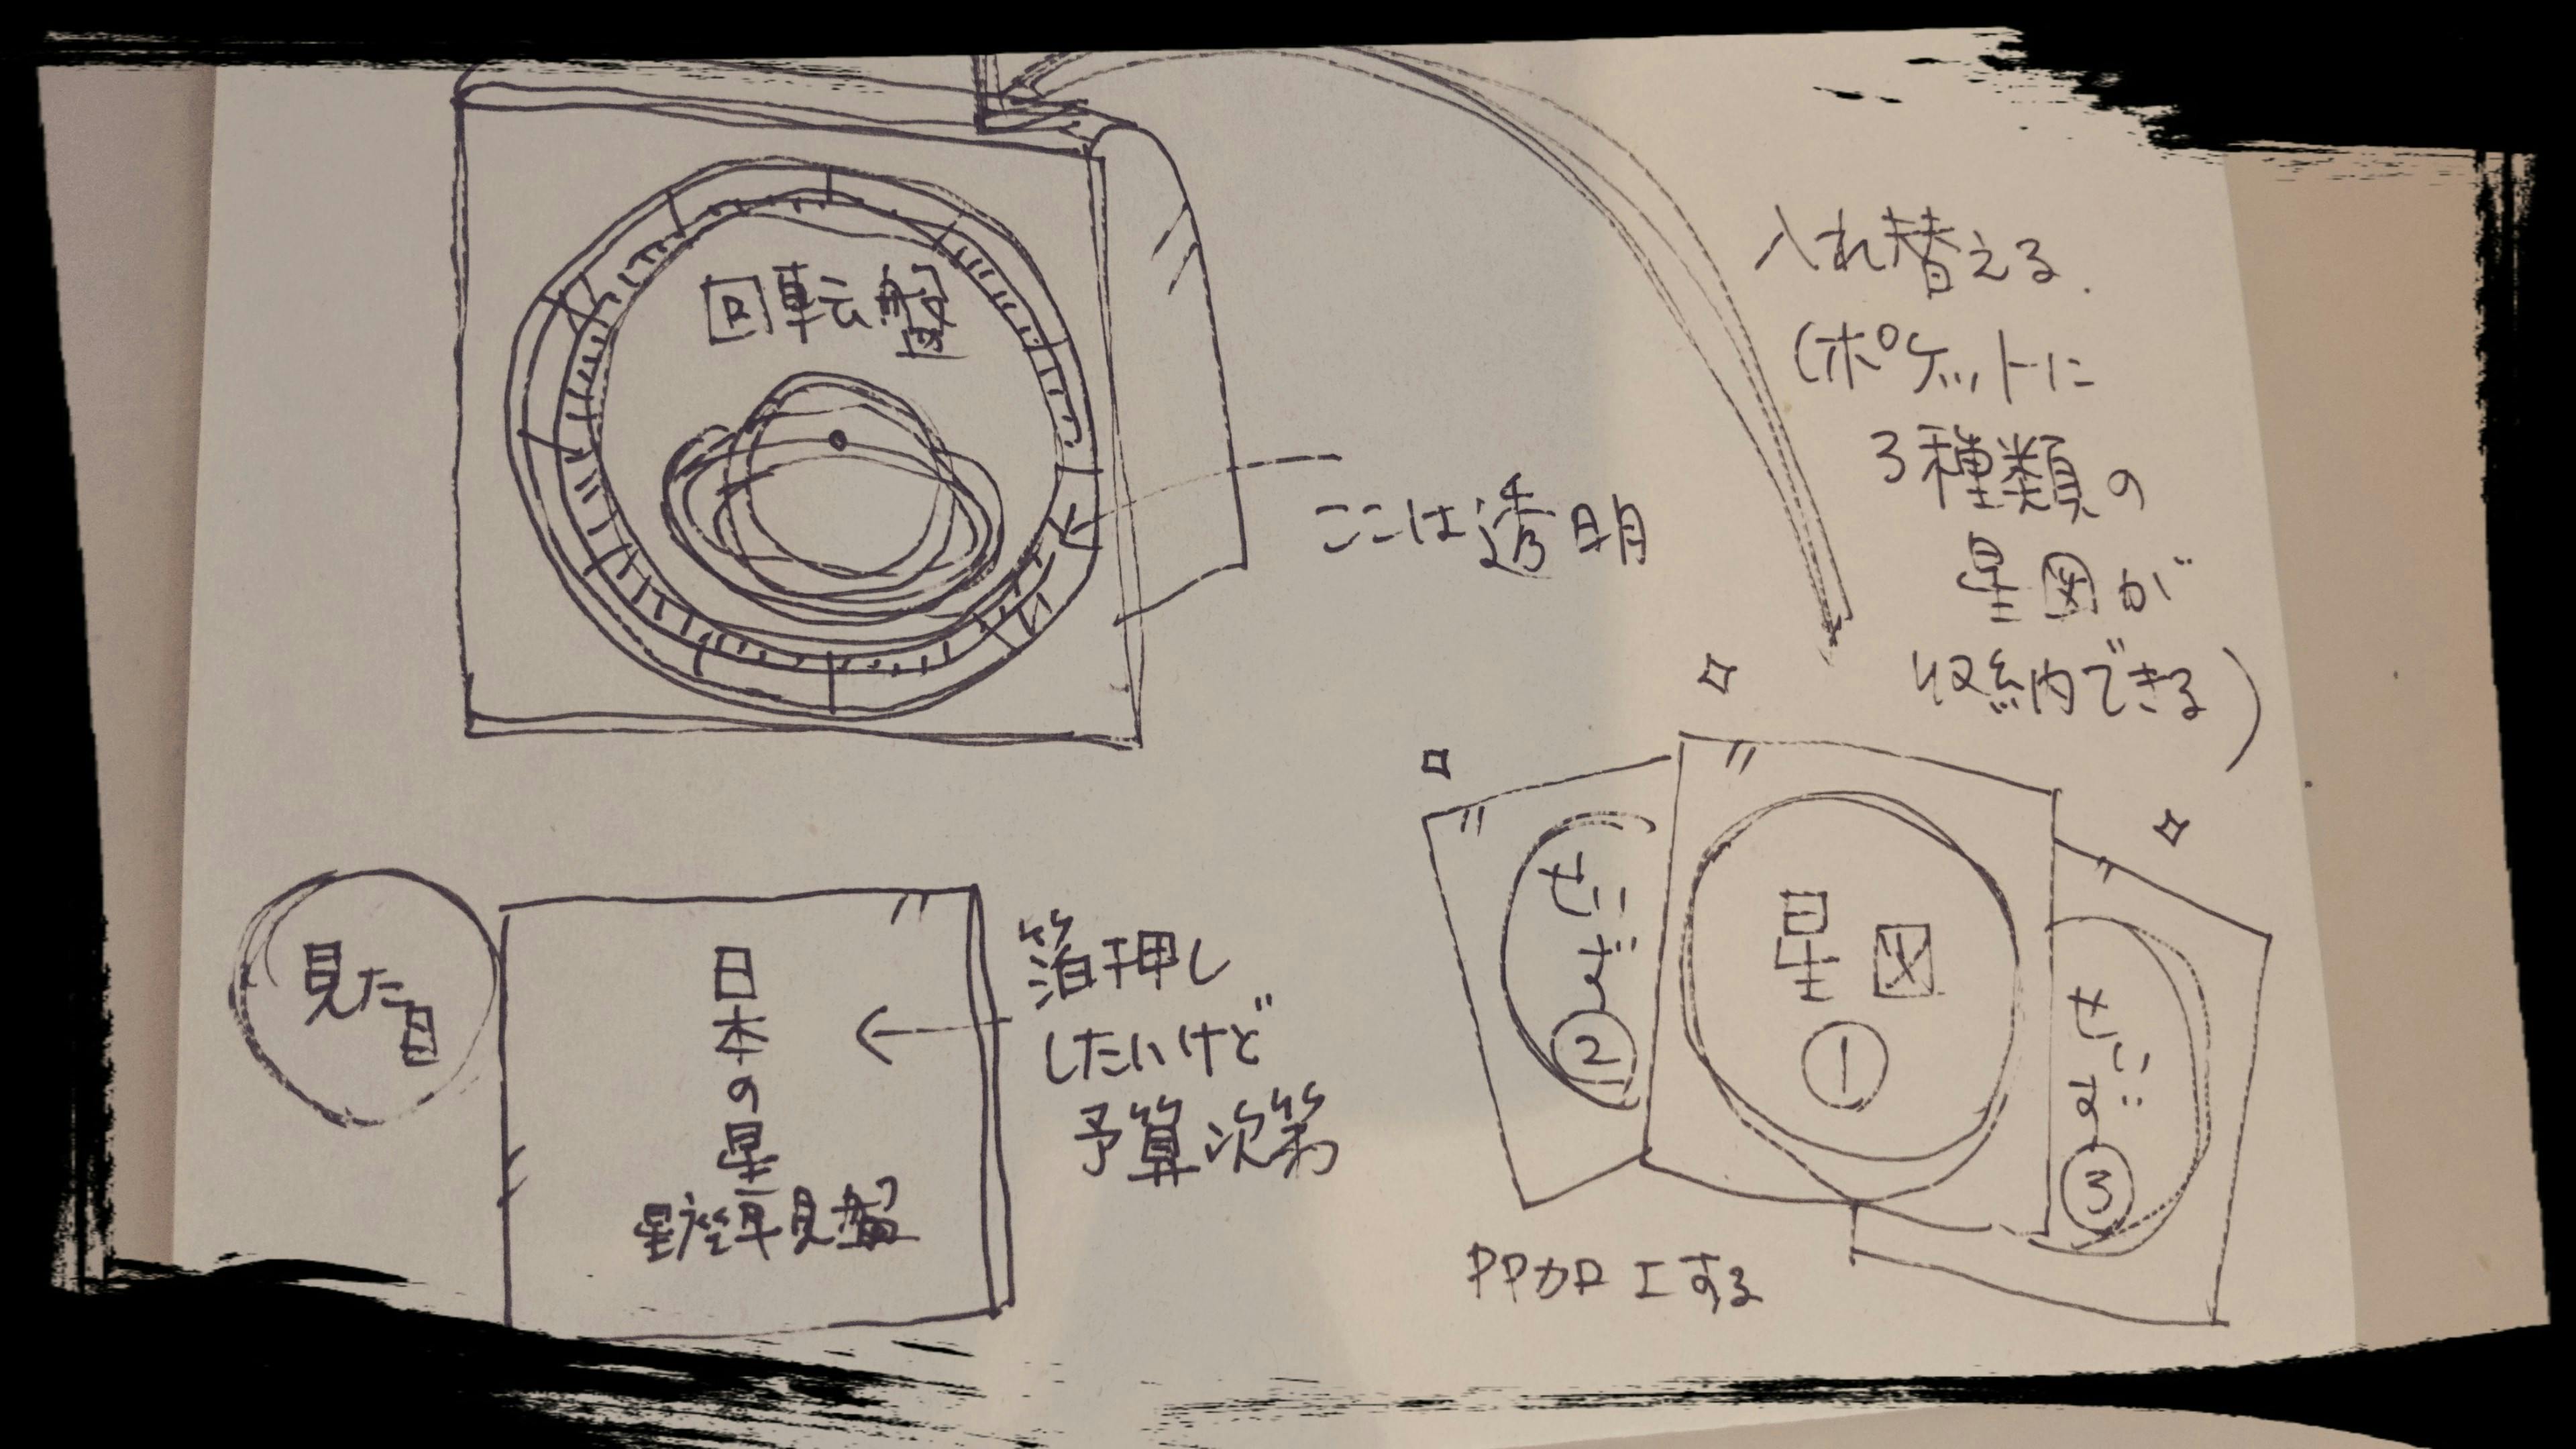 回転盤
ここは透明
入れ替える.
(ポケットに
3種類の
星図が
収納できる)
見た目
日本の星
星座早見盤
箔押し
したいけど
予算次第
せいず
②
星図
①
せいず
③
PP加工する